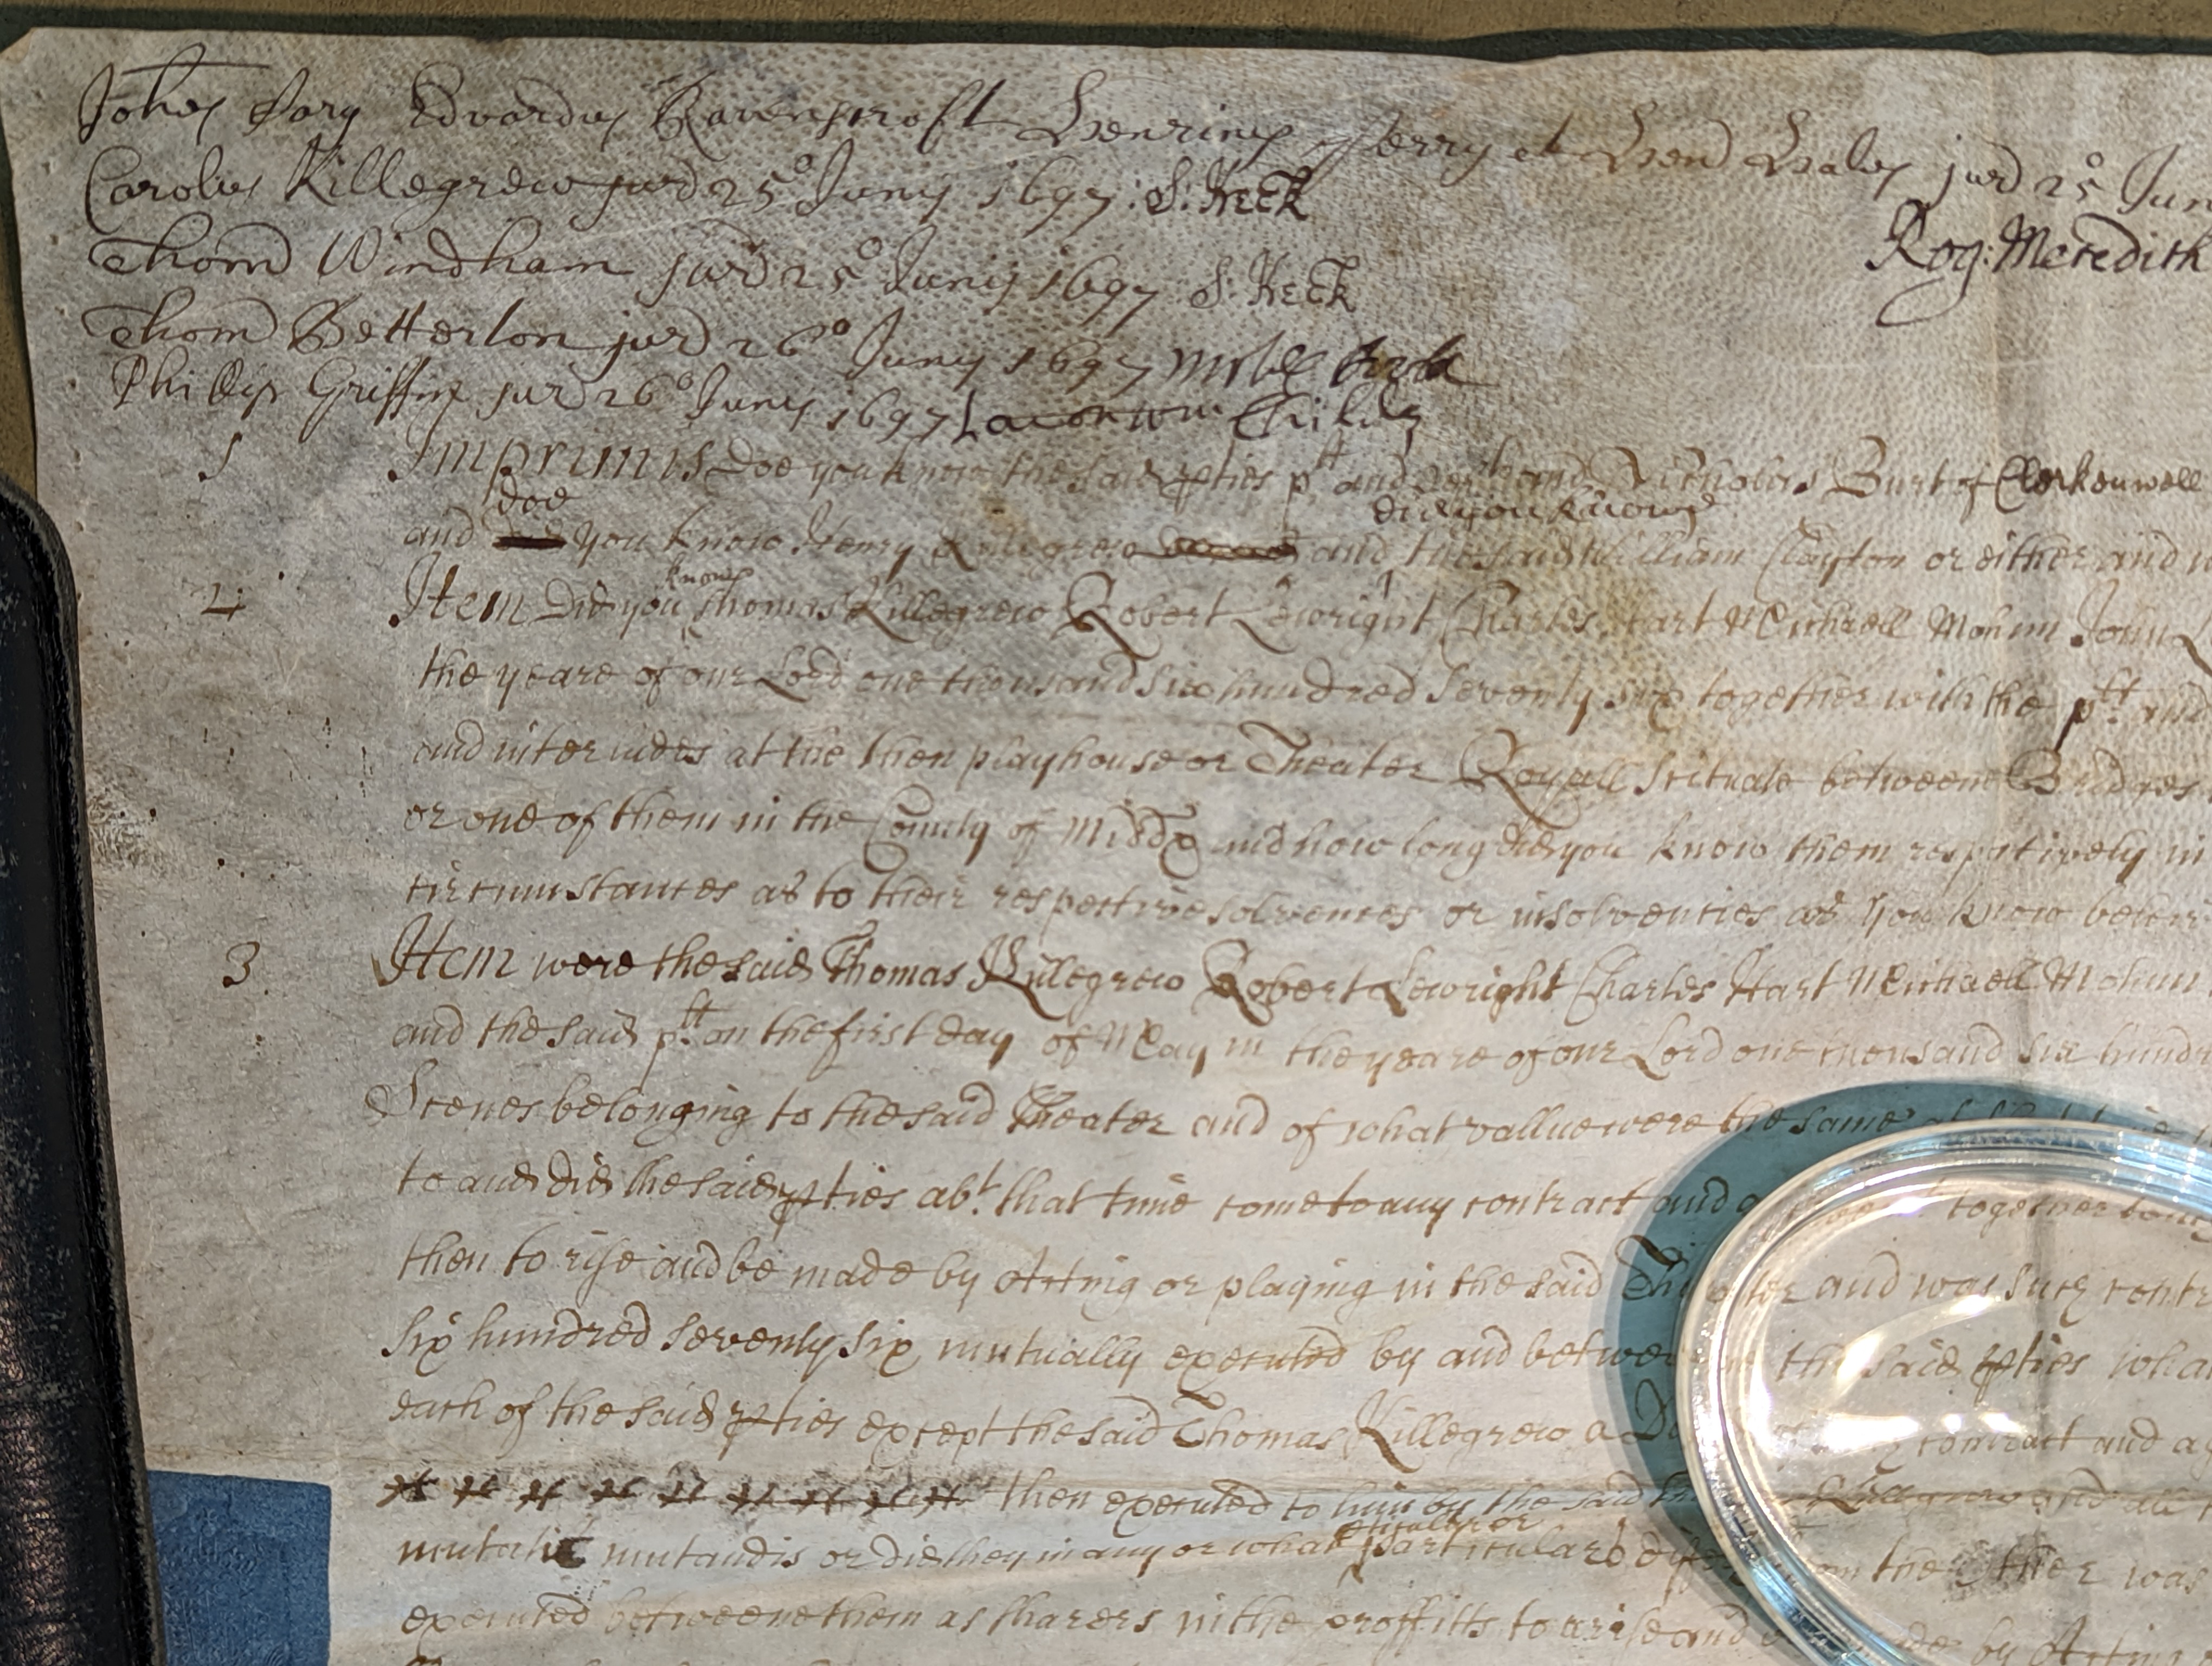 Johes Pary Edvardus Ravenscroft Henricus Perry et Hen Hales jurd 25o Jun
Carolus Killegrew jurd 25o Junij 1697: S: Keck
Rog: Meredith
Thom Windham jurd 25o Junij 1697 S: Keck
Thom Betterton jur 26o Junij 1697
Phillip Griffin jur 26o Junij 1697 Lacon Wm Childe
1 Imprimis Doe you know the said pties plt and and Nicholas Burt of Clerkenwell
doe did you knowe
and you know Henry Killegrew and the said William Clayton or either and
knowe
2 Item Did you Thomas Killegrew Robert Lewright Charles Hart Michaell Mohun John
the yeare of our Lord one thousand six hundred seventy six together with the plt and
and interludes at the then playhouse or Theater Royall scituate betweene Bridges
or one of them in the County of Middx and how long did you know them respectively in
circumstances as to their respective solvencies or insolvencies as you know
3 Item were the said Thomas Killegrew Robert Lewright Charles Hart Michaell Mohun
and the said plt on the first day of May in the yeare of our Lord one thousand six hundr
Scenes belonging to the said Theater and of what vallue were the same at that time
to and did the said pties abt. that time come to any contract and together
then to rise and be made by Acting or playing in the said Theater and was such contr
six hundred seventy six mutually executed by and betweene the said pties wha
each of the said pties except the said Thomas Killegrew a contract and a
then executed to him by the said Killegrew and all
mutatis mutandis or did they in any or what particulars differ from the other was
executed betweene them as sharers in the proffitts to arise and made by Acting